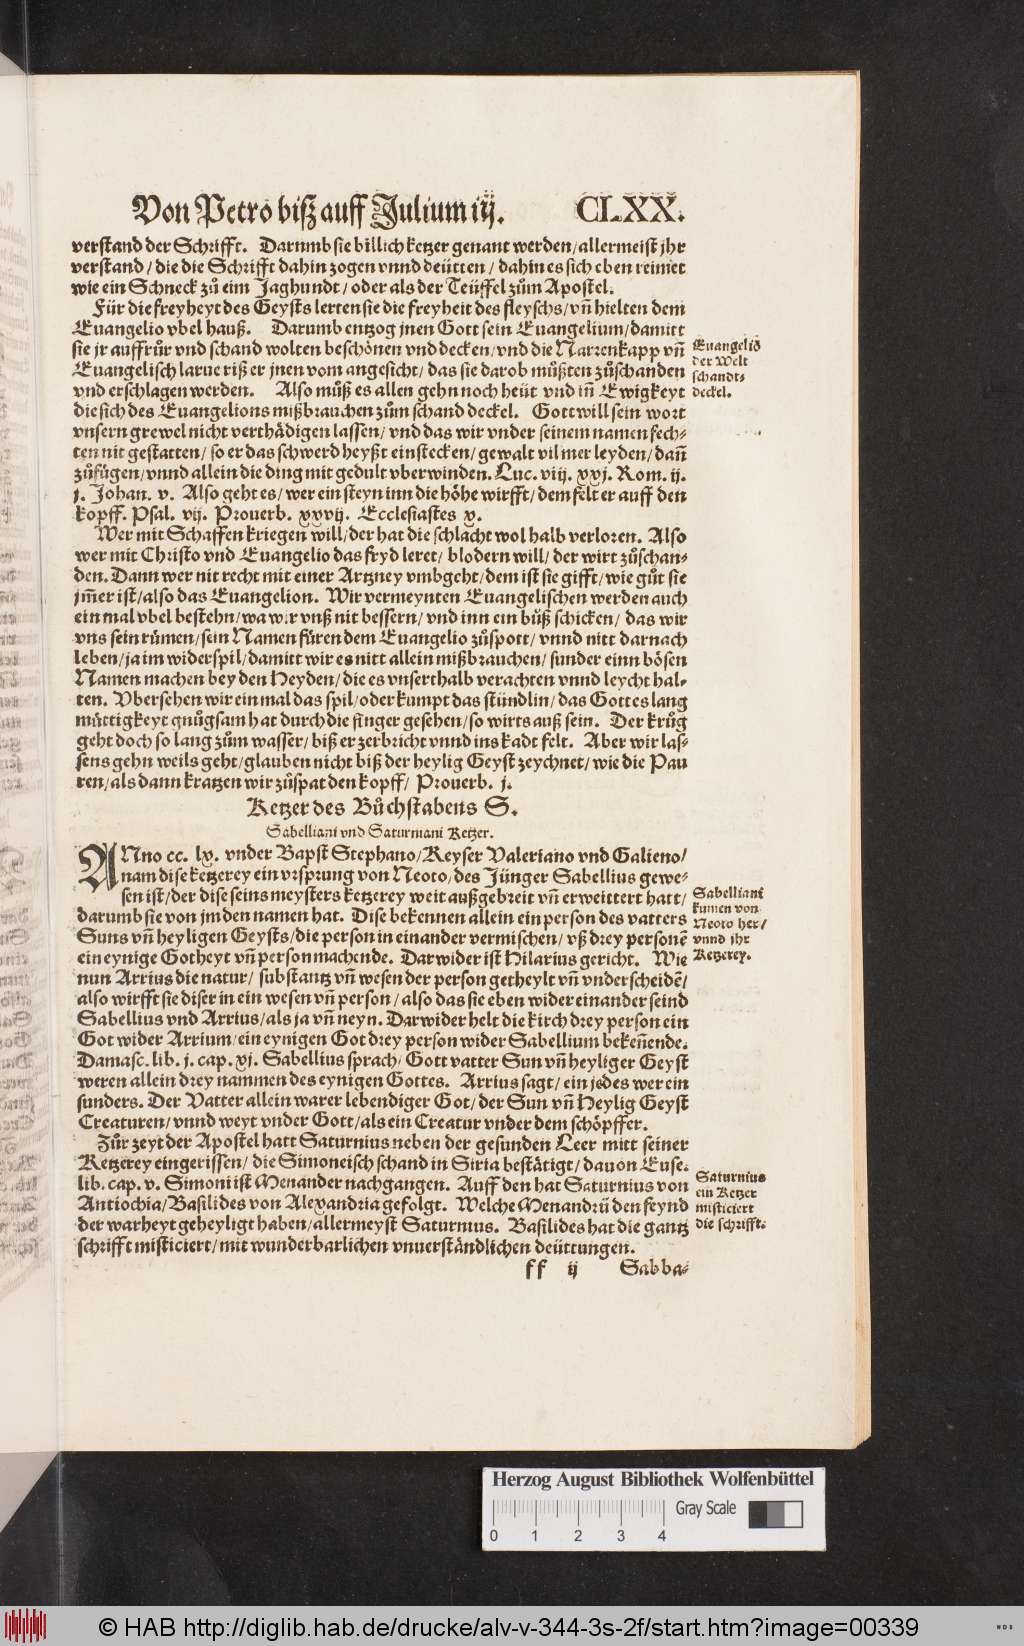 Von Petro biß auff Julium iij. CLXX.
verstand der Schrifft. Darumb sie billich ketzer genant werden/ allermeist jhr
verstand/ die die Schrifft dahin zogen vnnd deütten/ dahin es sich eben reimet
wie ein Schneck zů eim Jaghundt/ oder als der Teüffel zům Apostel.
Für die freyheyt des Geysts lerten sie die freyheit des fleyschs/ vñ hielten dem
Euangelio vbel hauß. Darumb entzog jnen Gott sein Euangelium/ damitt
sie jr auffrůr vnd schand wolten beschönen vnd decken/ vnd die Narrenkapp vñ
Euangelisch larue riß er jnen vom angesicht/ das sie darob můßten zůschanden
vnd erschlagen werden. Also můß es allen gehn noch heüt vnd iñ Ewigkeyt
die sich des Euangelions mißbrauchen zům schand deckel. Gott will sein wort
vnsern grewel nicht verthädigen lassen/ vnd das wir vnder seinem namen fech-
ten nit gestatten/ so er das schwerd heyßt einstecken/ gewalt vil mer leyden/ dañ
zůfügen/ vnnd allein die ding mit gedult vberwinden. Luc. viij. xxj. Rom. ij.
j. Johan. v. Also geht es/ wer ein steyn inn die höhe wirfft/ dem felt er auff den
kopff. Psal. vij. Prouerb. xxvij. Ecclesiastes x.
Euangeliō
der Welt
schandt-
deckel.
Wer mit Schaffen kriegen will/ der hat die schlacht wol halb verloren. Also
wer mit Christo vnd Euangelio das fryd leret/ blodern will/ der wirt zůschan-
den. Dann wer nit recht mit einer Artzney vmbgeht/ dem ist sie gifft/ wie gůt sie
jm̃er ist/ also das Euangelion. Wir vermeynten Euangelischen werden auch
ein mal vbel bestehn/ wa wir vnß nit bessern/ vnd inn ein bůß schicken/ das wir
vns sein rümen/ sein Namen füren dem Euangelio zůspott/ vnnd nitt darnach
leben/ ja im widerspil/ damitt wir es nitt allein mißbrauchen/ sunder einn bösen
Namen machen bey den Heyden/ die es vnserthalb verachten vnnd leycht hal-
ten. Vbersehen wir ein mal das spil/ oder kumpt das stündlin/ das Gottes lang
mütigkeyt gnůgsam hat durch die finger gesehen/ so wirts auß sein. Der krůg
geht doch so lang zům wasser/ biß er zerbricht vnnd ins kadt felt. Aber wir las-
sens gehn weils geht/ glauben nicht biß der heylig Geyst zeychnet/ wie die Pau
ren/ als dann kratzen wir zůspat den kopff/ Prouerb. j.
Ketzer des Bůchstabens S.
Sabelliani vnd Saturniani Ketzer.
ANno cc. lx. vnder Bapst Stephano/ Keyser Valeriano vnd Galieno/
nam dise ketzerey ein vrsprung von Neoto/ des Jünger Sabellius gewe-
sen ist/ der dise seins meysters ketzerey weit außgebreit vñ erweittert hatt/
darumb sie von jm den namen hat. Dise bekennen allein ein person des vatters
Suns vñ heyligen Geysts/ die person in einander vermischen/ vß drey personē
ein eynige Gotheyt vñ person machende. Darwider ist Hilarius gericht. Wie
nun Arrius die natur/ substantz vñ wesen der person getheylt vñ vnderscheidē/
also wirfft sie diser in ein wesen vñ person/ also das sie eben wider einander seind
Sabellius vnd Arrius/ als ja vñ neyn. Darwider helt die kirch drey person ein
Got wider Arrium/ ein eynigen Got drey person wider Sabellium bekeñende.
Damasc. lib. j. cap. xj. Sabellius sprach/ Gott vatter Sun vñ heyliger Geyst
weren allein drey nammen des eynigen Gottes. Arrius sagt/ ein jedes wer ein
sunders. Der Vatter allein warer lebendiger Got/ der Sun vñ Heylig Geyst
Creaturen/ vnnd weyt vnder Gott/ als ein Creatur vnder dem schöpffer.
Sabelliani
kumen von
Neoto her/
vnnd jhr
Ketzerey.
Zůr zeyt der Apostel hatt Saturnius neben der gesunden Leer mitt seiner
Ketzerey eingerissen/ die Simoneisch schand in Siria bestätigt/ dauon Euse.
lib. cap. v. Simoni ist Menander nachgangen. Auff den hat Saturnius von
Antiochia/ Basilides von Alexandria gefolgt. Welche Menandrū den feynd
der warheyt geheyligt haben/ allermeyst Saturnius. Basilides hat die gantz
schrifft misticiert/ mit wunderbarlichen vnuerständlichen deüttungen.
Saturnius
ein Ketzer
misticiert
die schrifft.
ff ij Sabba-
Herzog August Bibliothek Wolfenbüttel
Gray Scale
0 1 2 3 4
© HAB http://diglib.hab.de/drucke/alv-v-344-3s-2f/start.htm?image=00339